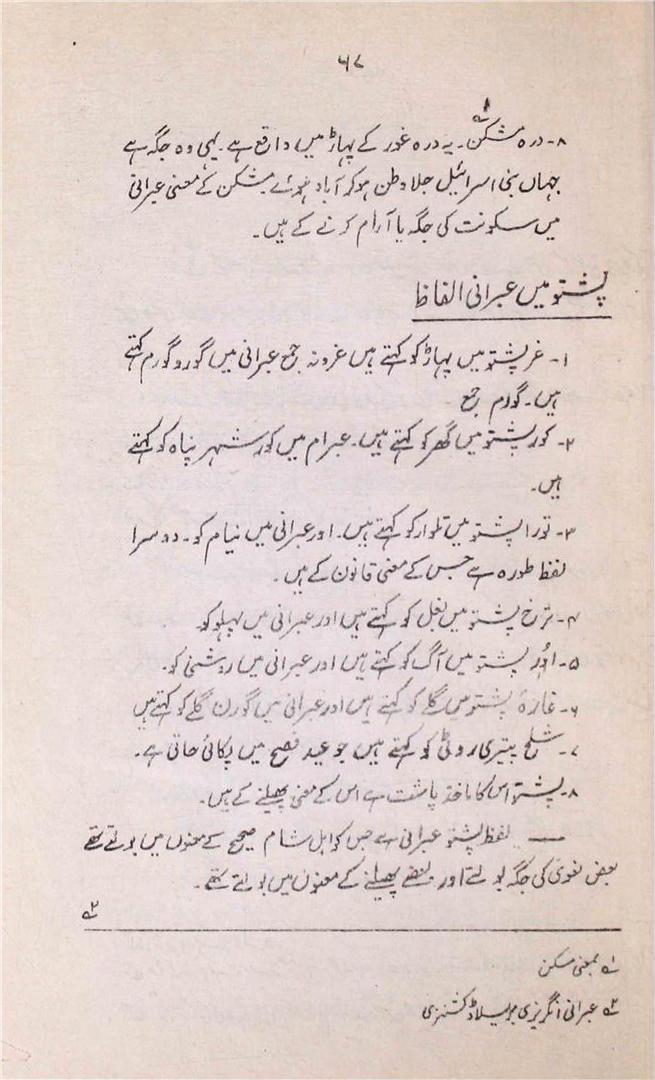 ۶۷
۸۔ درہ مشکن۔ یہ درہ غور کے پہاڑ میں واقع ہے۔ یہی وہ جگہ ہے
جہاں بنی اسرائیل جلاوطن ہوکر آباد ہوئے مشکن کے معنی عبرانی
میں سکونت کی جگہ یا آرام کرنے کے ہیں۔
پشتو میں عبرانی الفاظ
۱۔ غر پشتو میں پہاڑ کو کہتے ہیں غرونہ جمع عبرانی میں گور و گورم کہتے
ہیں۔ گورم جمع
۲۔ کور پشتو میں گھر کو کہتے ہیں۔ عبرام میں کور شہر پناہ کو کہتے
ہیں۔
۳۔ تورا پشتو میں تلوار کو کہتے ہیں۔ اور عبرانی میں نیام کو۔ دوسرا
لفظ طورہ ہے جس کے معنی قانون کے ہیں۔
۴۔ ترخ پشتو میں بغل کو کہتے ہیں اور عبرانی میں پہلو کو۔
۵۔ اُور پشتو میں آگ کو کہتے ہیں اور عبرانی میں روشنی کو۔
۶۔ غاړہ پشتو میں گلے کو کہتے ہیں اور عبرانی میں گورن گلے کو کہتے ہیں
۷۔ شلخ پتیری روٹی کو کہتے ہیں جو عید فصح میں پکائی جاتی ہے۔
۸۔ پشتو اس کا ماخذ پاشت ہے اس کے معنی پھیلنے کے ہیں۔
— لفظ پشتو عبرانی ہے جس کو اہل شام صحیح کے معنوں میں بولتے تھے
بعض لغوی کی جگہ بولتے اور بعضے پھیلنے کے معنوں میں بولتے تھے۔
۲ے
۱ے بمعنی مسکن
۲ے عبرانی انگریزی ڈکشنری